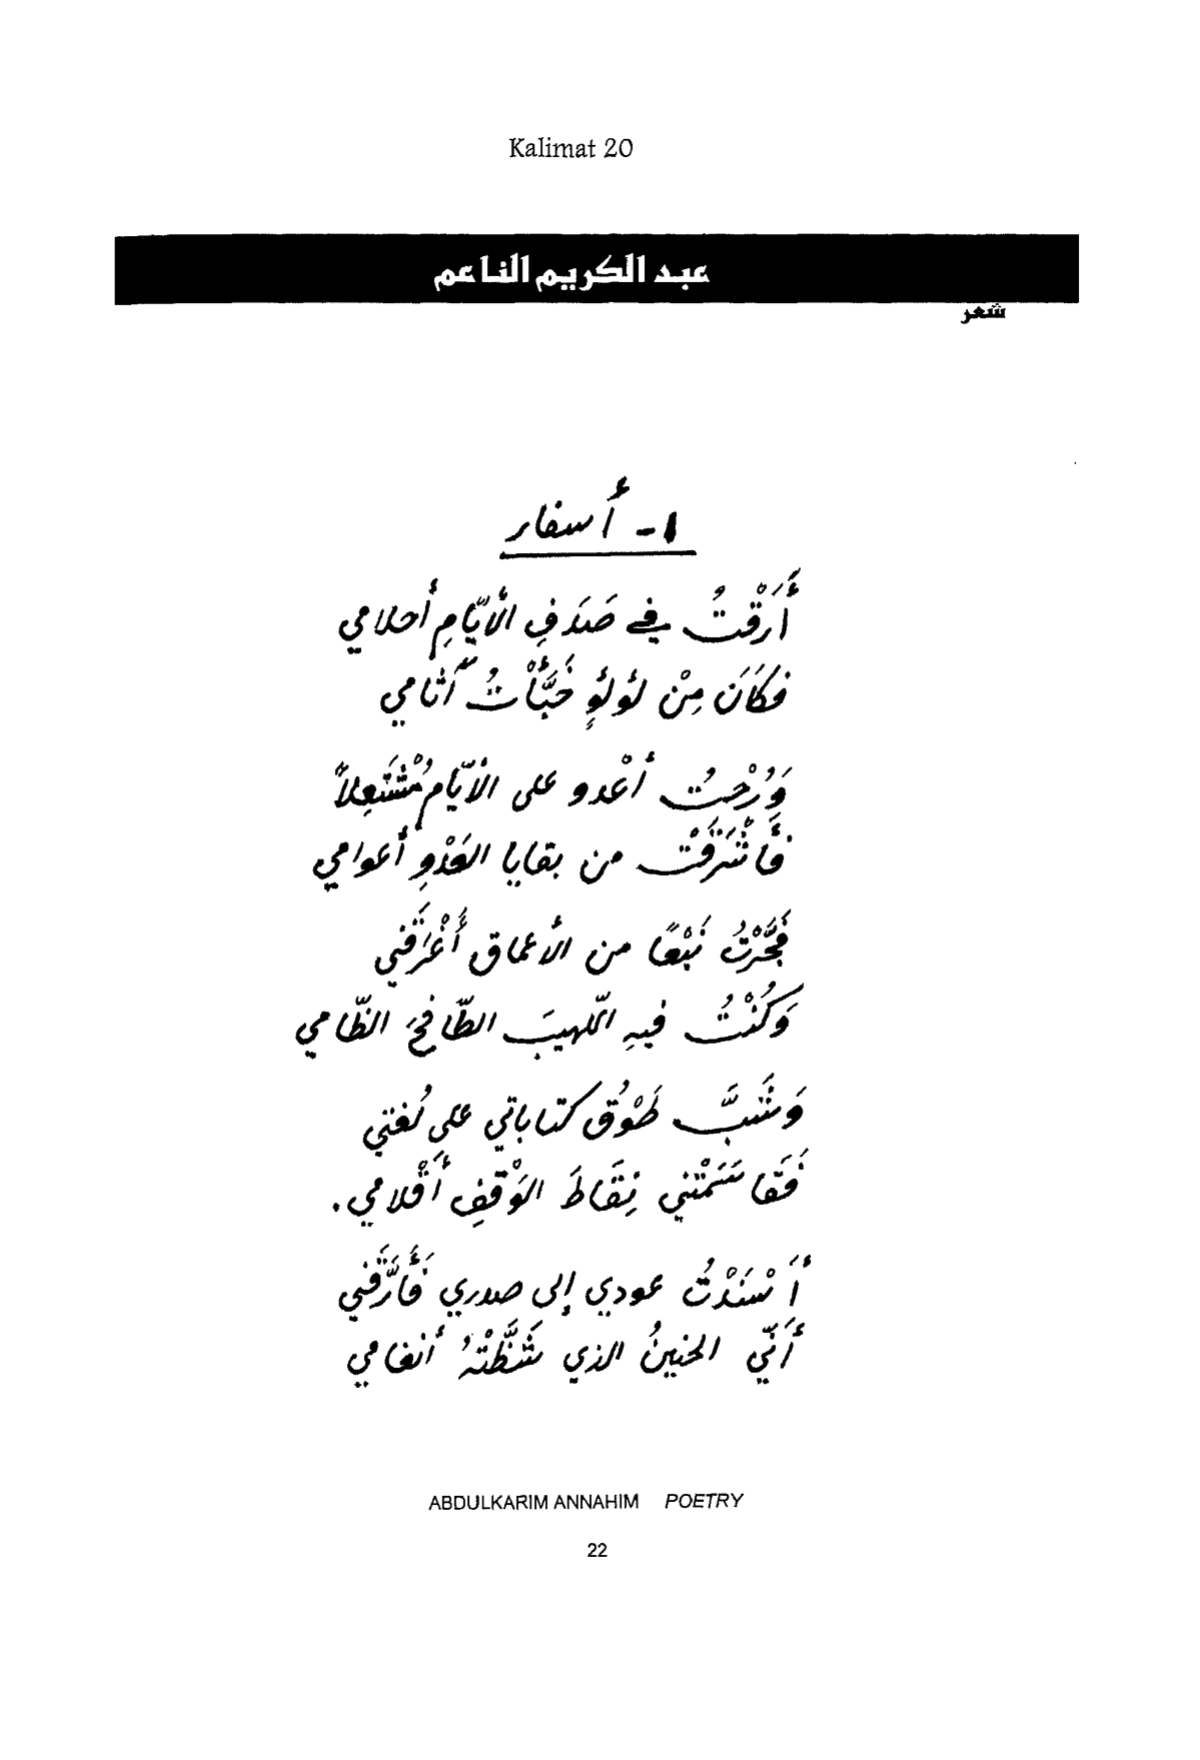 Kalimat 20
عبد الكريم الناعم
شعر
١- أسفار
أَرَقْتُ في صَدَفِ الأيّامِ أحلامي
فكَانَ مِنْ لؤلؤٍ خَبَّأْتُ آثامي
وَرُحْتُ أعْدو على الأيّام مُشْتَعِلاً
فَأَشْرَقَتْ من بقايا العَدْوِ أعوامي
فَجَّرْتُ نَبْعًا من الأعماق أَغْرَقَني
وَكُنْتُ فيهِ اللّهيبَ الطّافحَ الظّامي
وَشَبَّ طَوْقُ كتاباتي على لُغتي
فَقَاسَمَتْني نِقَاطَ الوَقْفِ أَقْلامي.
أَسْنَدْتُ عودي إلى صدري فَأَرَّقَني
أَنّي الحنينُ الذي شَظَّتْهُ أنغامي
ABDULKARIM ANNAHIM POETRY
22